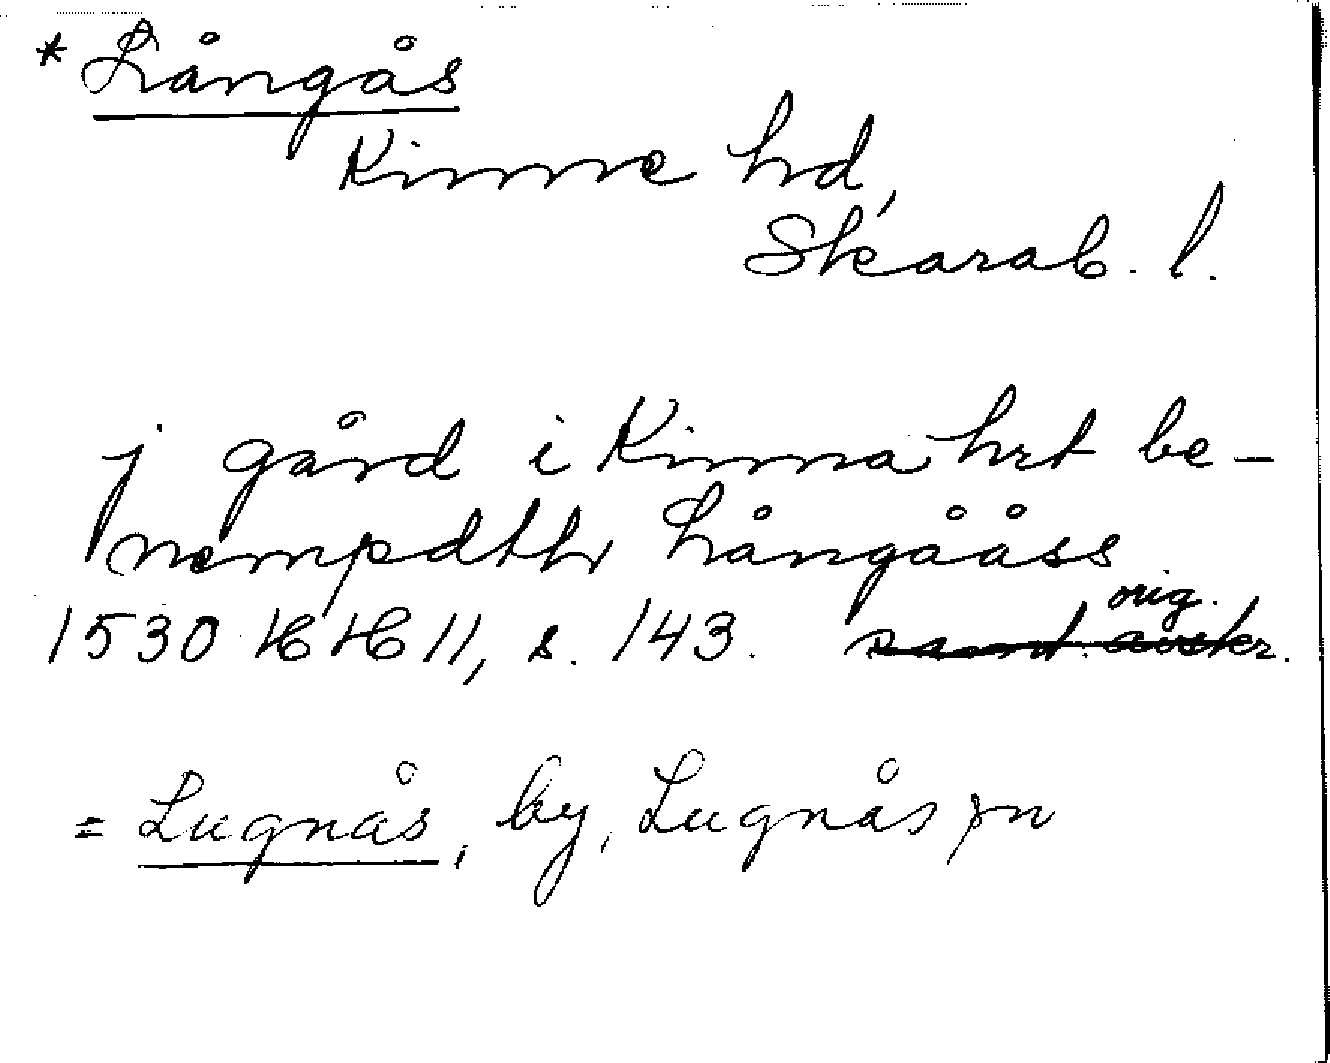 * Långås
Kinne hd,
Skarab. l.
j gård i Kinna hrt be-
nempdth Långååss
orig.
1530 HH 11, s. 143. samt. avskr.
= Lugnås, by, Lugnås sn